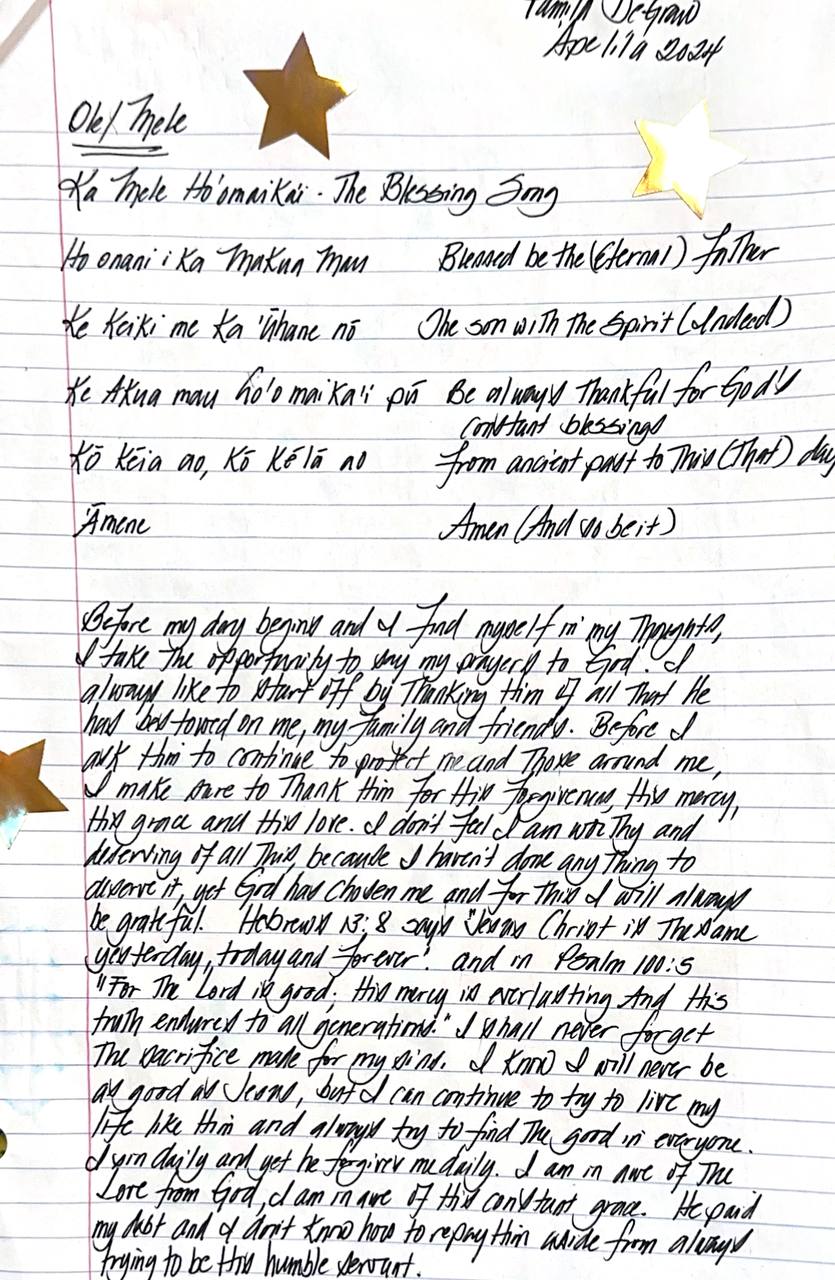 DeGraw
Apelila 2024
Ole/ Mele
Ka Mele Ho'omaika'i - The Blessing Song
Ho onani i Ka Makua Mau Blessed be the (Eternal) Father
Ke Keiki me Ka 'Ūhane nō The son with the Spirit (Indeed)
Ke Akua mau ho'o maika'i pū Be always Thankful for God's
constant blessings
Kō Kēia ao, Kō Kēlā ao from ancient past to This (That) day
'Āmene Amen (And so be it)
Before my day begins and I find myself in my Thoughts,
I take The opportunity to say my prayers to God. I
always like to start off by Thanking Him of all That He
has bestowed on me, my family and friends. Before I
ask Him to continue to protect me and Those around me,
I make sure to Thank Him for His forgiveness, His mercy,
His grace and His love. I don't feel I am worthy and
deserving of all This, because I haven't done anything to
deserve it, yet God has chosen me and for This I will always
be grateful. Hebrews 13:8 says "Jesus Christ is The same
yesterday, today and forever". and in Psalm 100:5
"For The Lord is good; His mercy is everlasting And His
truth endures to all generations." I shall never forget
The sacrifice made for my sins. I know I will never be
as good as Jesus, but I can continue to try to live my
life like Him and always try to find The good in everyone.
I sin daily and yet he forgives me daily. I am in awe of The
Love from God, I am in awe of His constant grace. He paid
my debt and I don't know how to repay Him aside from always
trying to be His humble servant.